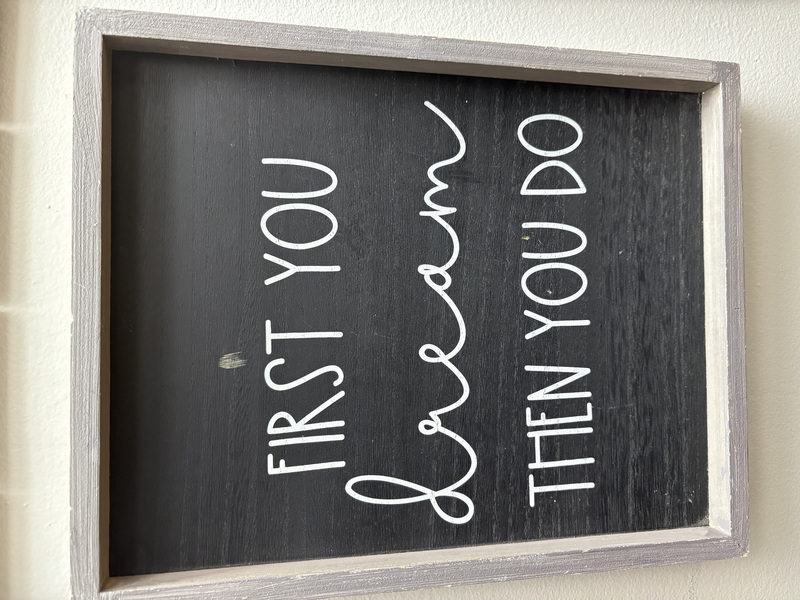 FIRST YOU
dream
THEN YOU DO